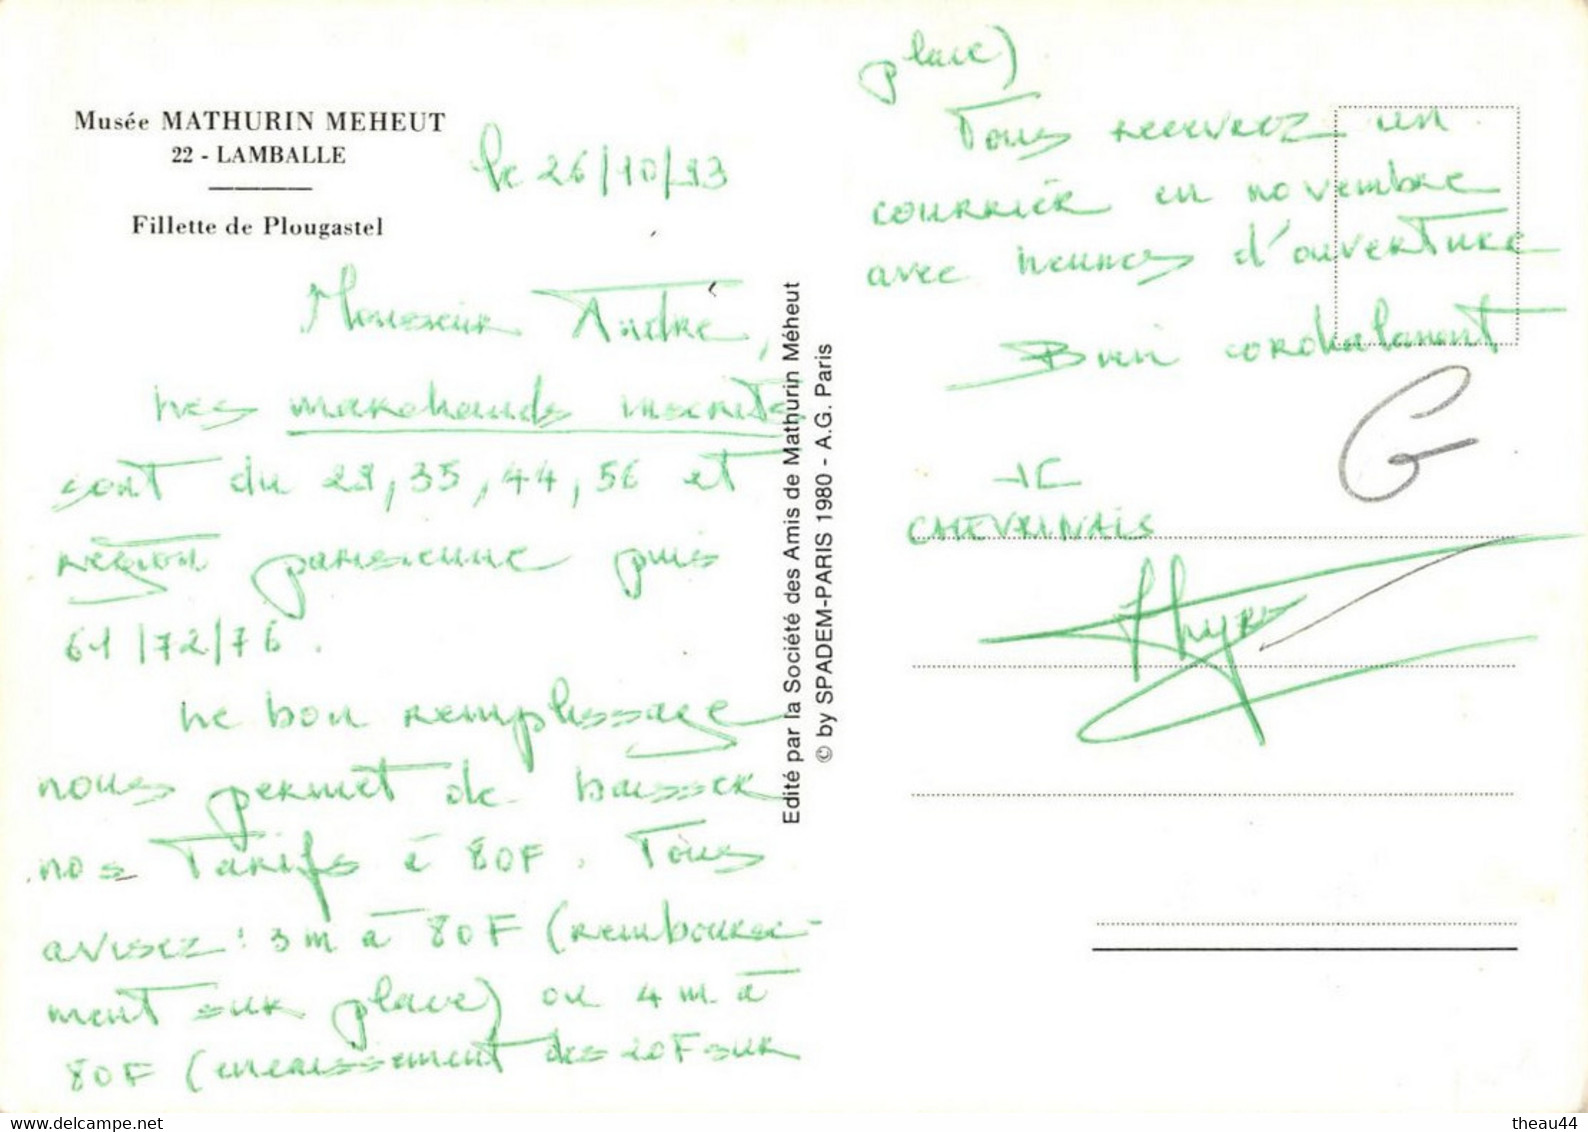 Musée MATHURIN MEHEUT
22 - LAMBALLE
Fillette de Plougastel
le 26/10/93
Monsieur André,
nes marchands inscrits
sont du 29, 35, 44, 56 et
région parisienne puis
61/72/76.
ne bon remplissage
nous permet de baisser
nos tarifs à 80F. Vous
avisez: 3m à 80F (rembourse-
ment sur place) ou 4m à
80F (encaissement des 20F sur
place)
Vous recevrez un
courrier en novembre
avec heures d'ouverture
Bien cordialement
JC
CHEVRINAIS
G
Edité par la Société des Amis de Mathurin Méheut
© by SPADEM-PARIS 1980 - A.G. Paris
theau44